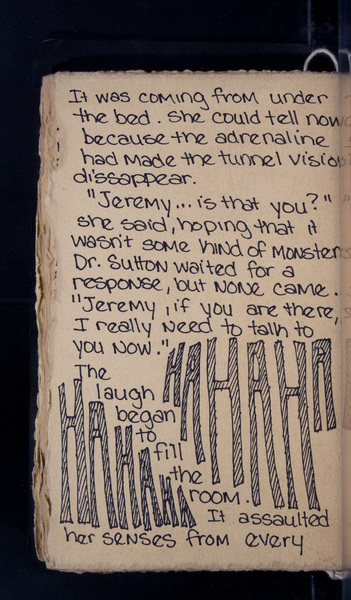 It was coming from under
the bed. She could tell now
because the adrenaline
had made the tunnel vision
dissappear.
"Jeremy... is that you?"
she said, hoping that it
wasn't some kind of monster.
Dr. Sutton waited for a
response, but none came.
"Jeremy, if you are there,
I really need to talk to
you now."
HAHAHAHA
The
laugh
began
to
fill
the
room.
HAHAHAHA
It assaulted
her senses from every